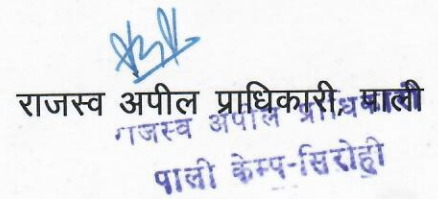 राजस्व अपील प्राधिकारी, पाली
राजस्व अपील प्राधिकारी
पाली केम्प-सिरोही